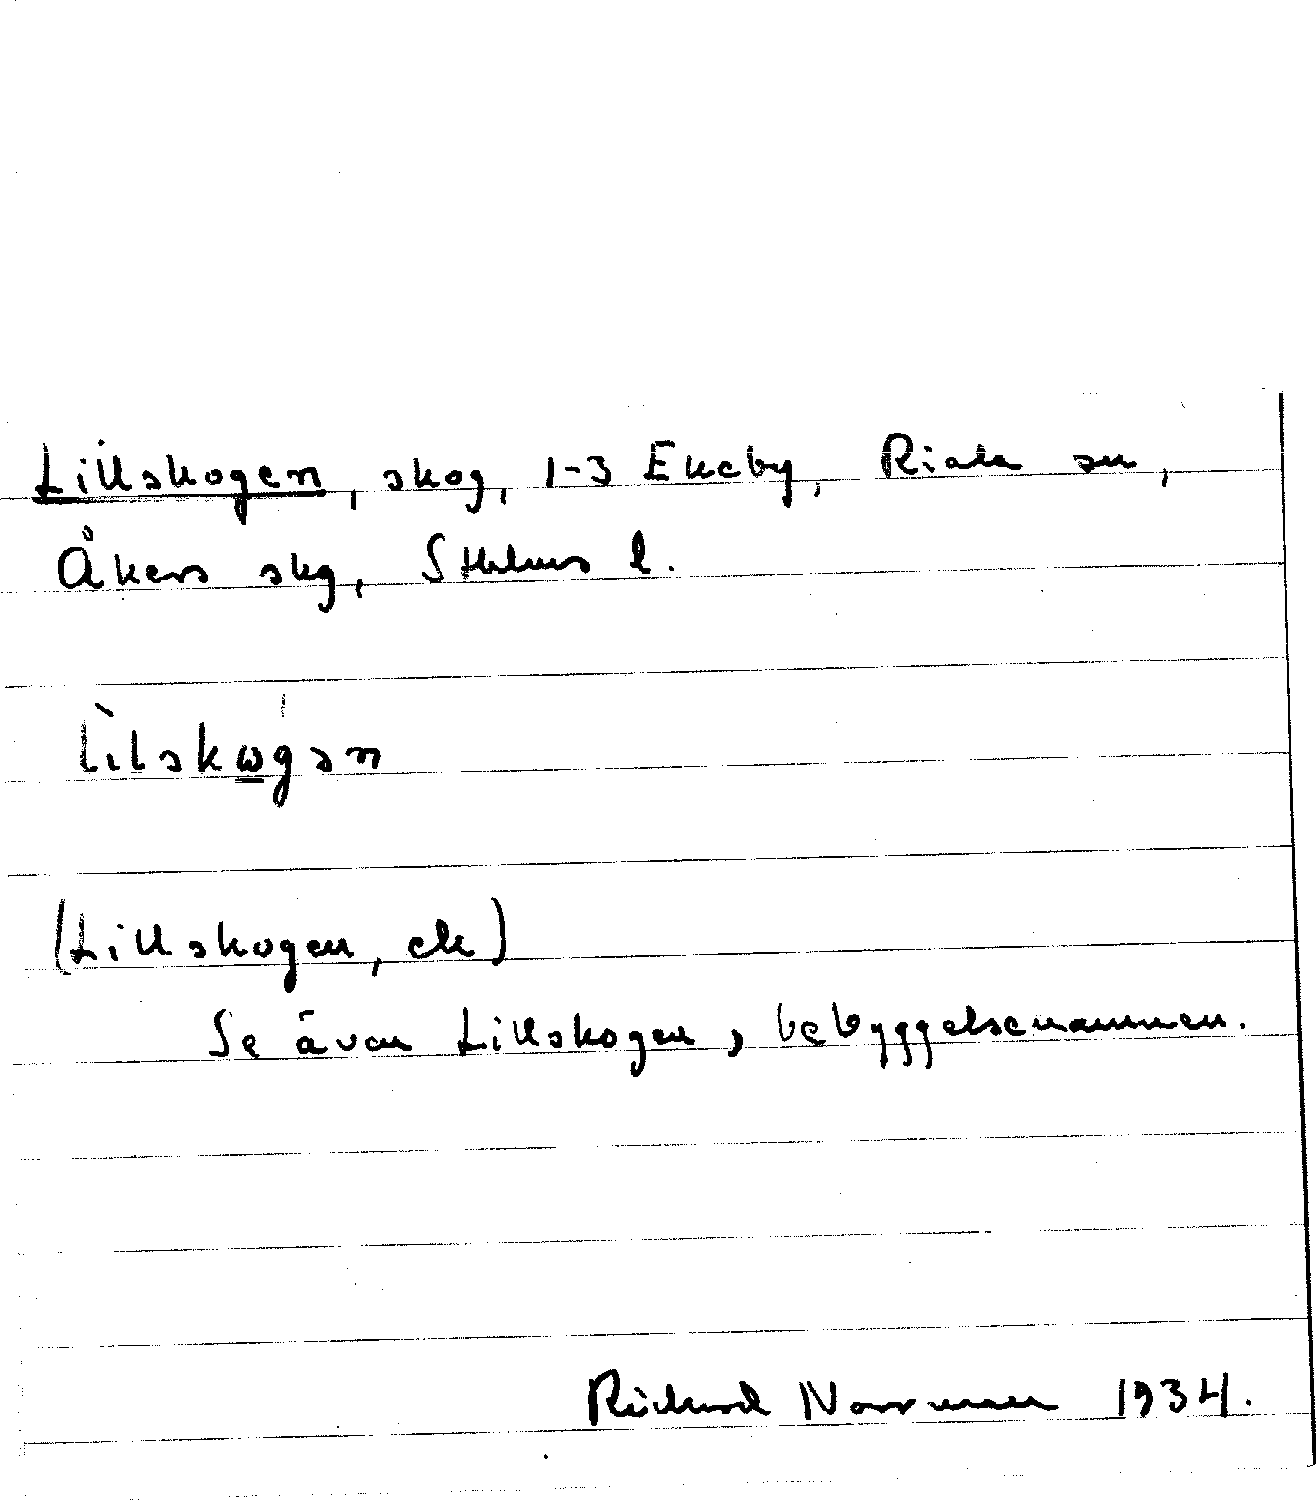 Lillskogen, skog, 1-3 Ekeby, Riala sn,
Åkers skg, Sthlms l.
lìlskωgən
(Lillskogen, ek)
Se även Lillskogen, bebyggelsenamnen.
Richard Norrman 1934.